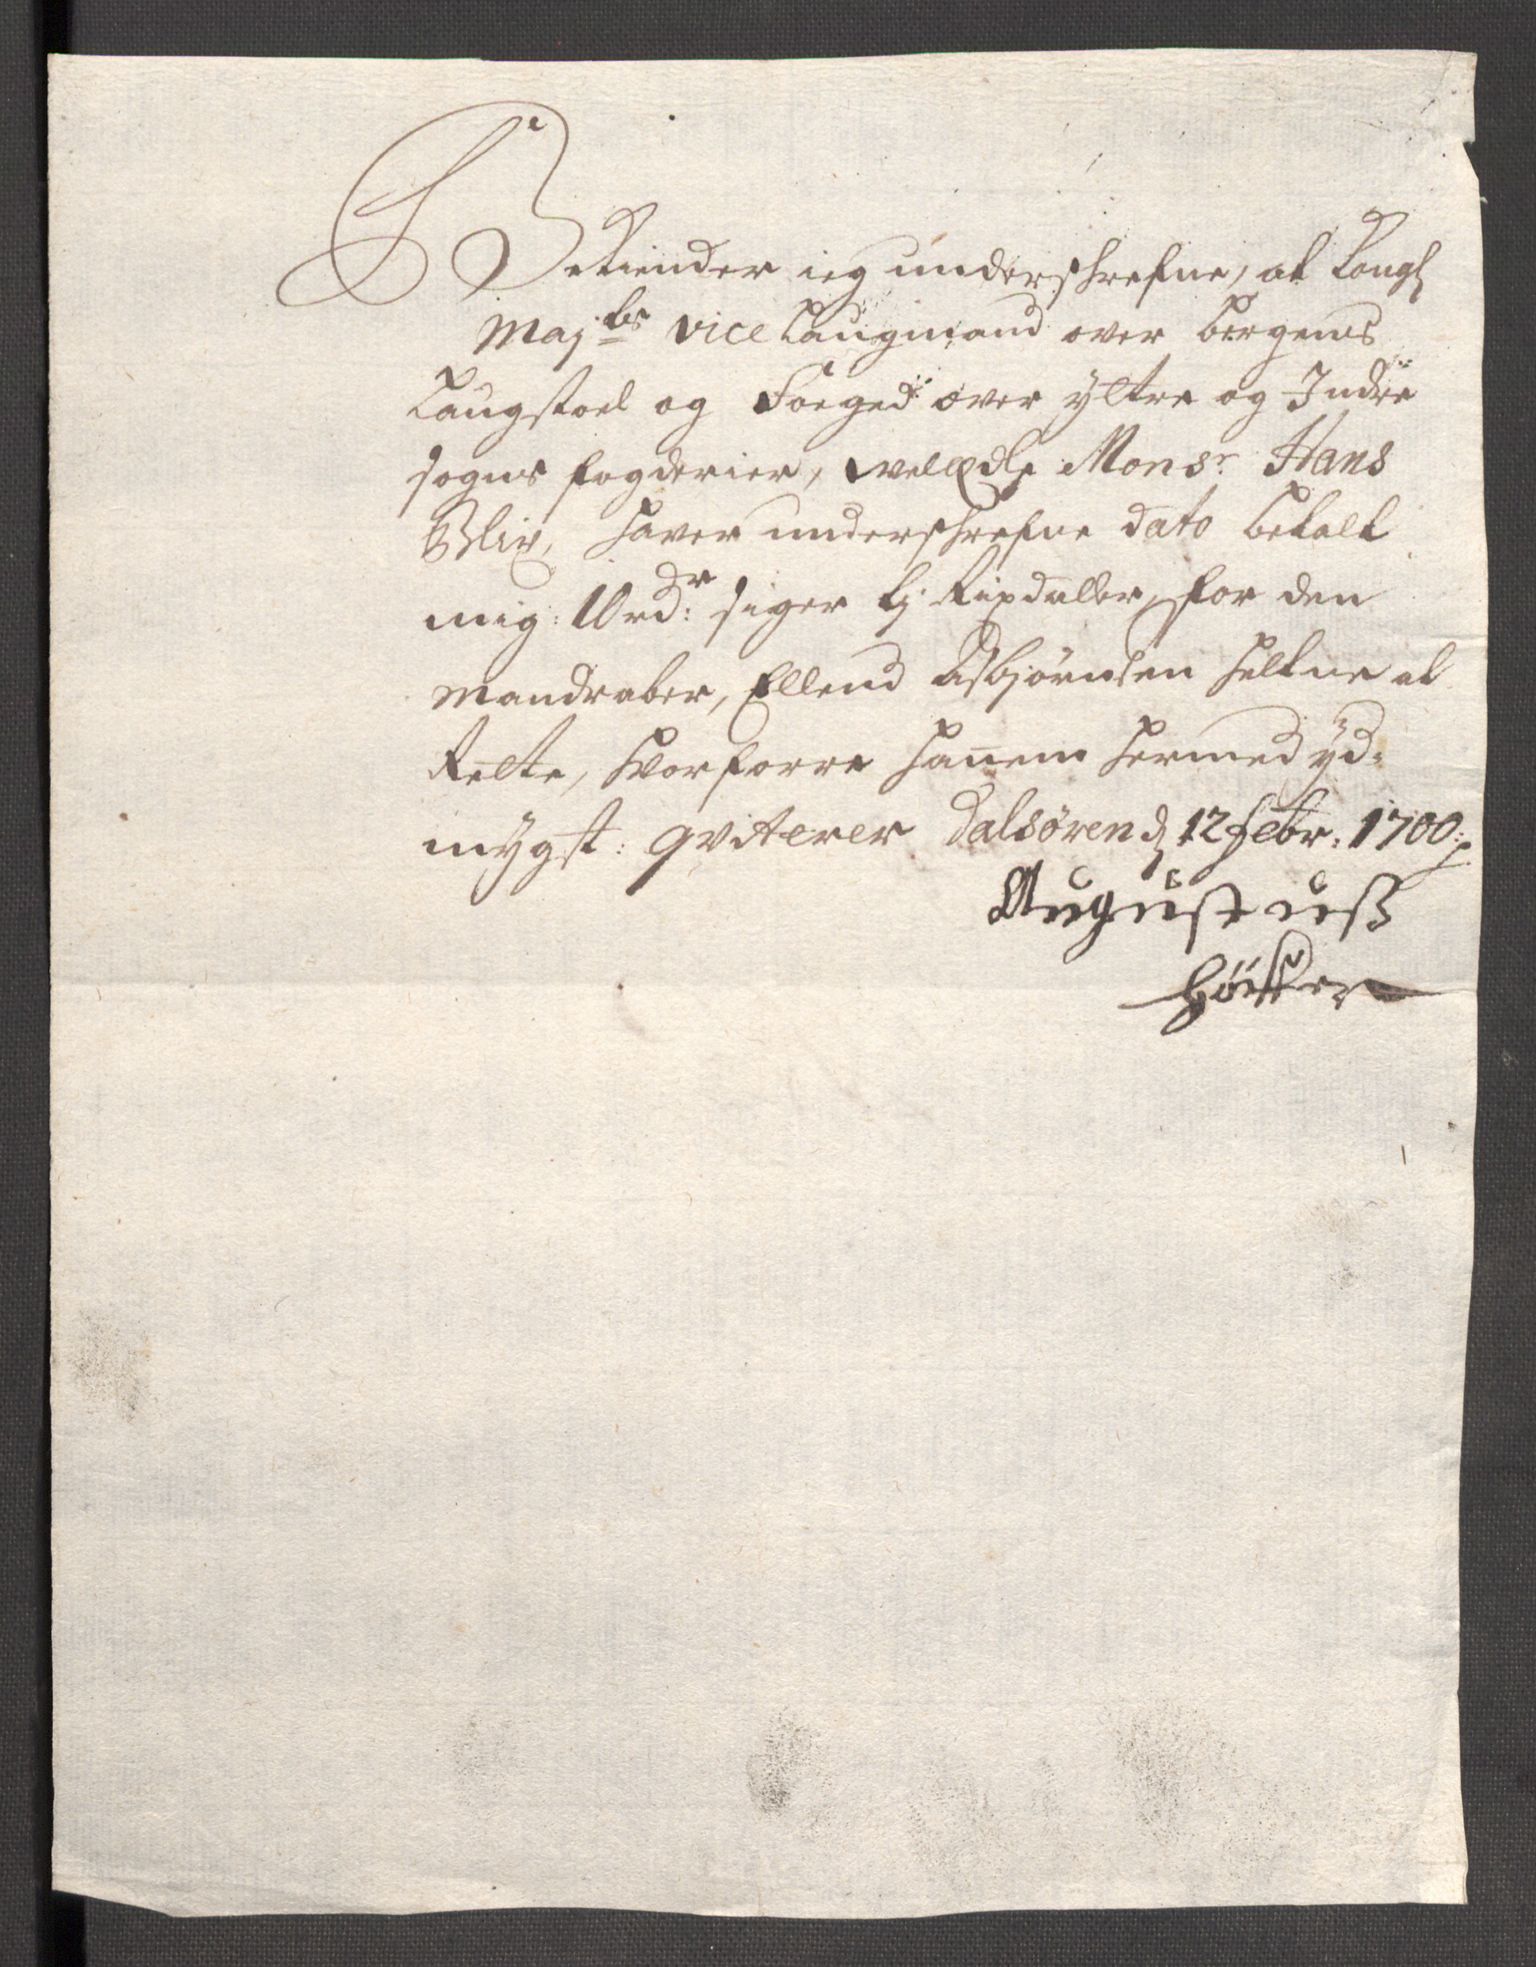 Bekiender ieg underschrefne, at Kongl
Maj:ts vice Laugmand over Bergens
Laugstoel og Foeged over yttre og Indre
Sogns fogderier, welædle Monsr. Hans
Blix, haver underschrefne dato betalt
mig: 10rdr: siger ti Rixdaller, for den
Mandraber, Ellend Asbjørnsen hæltne at
Rette, hvorforre hanem hermed yd-
mygst: qviterer Dalsøren d 12 febr: 1700:
Augustuß